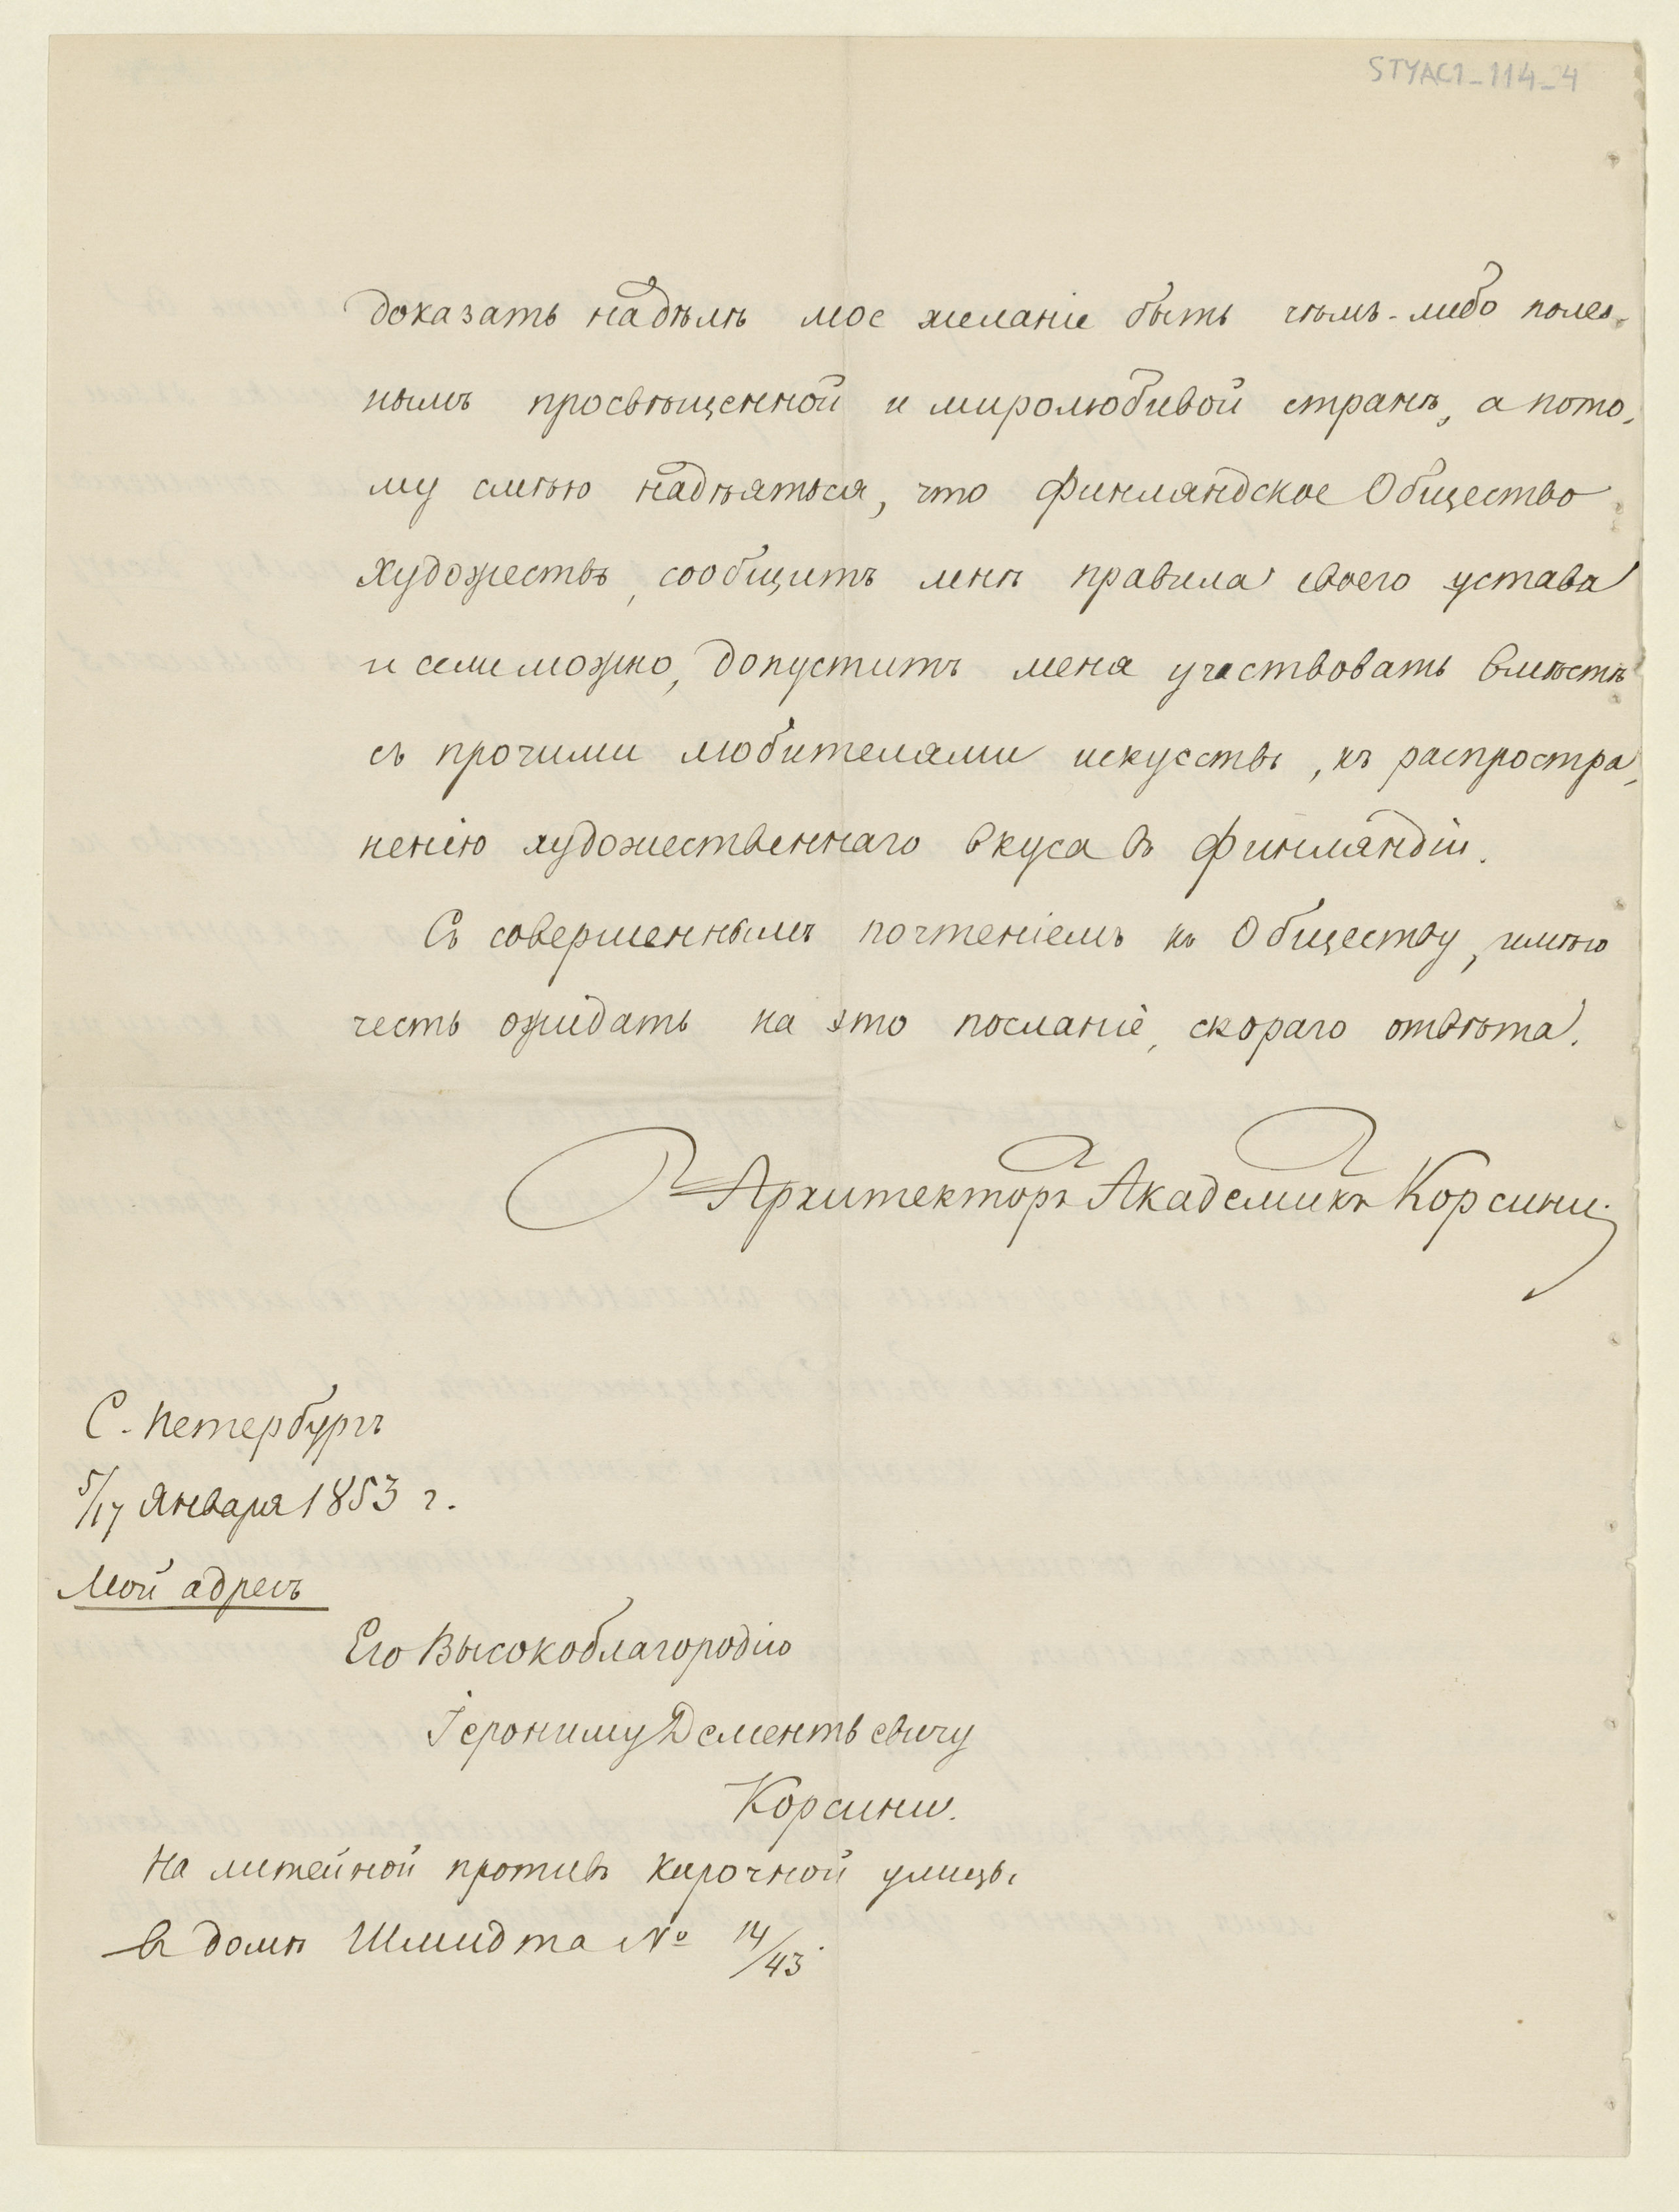 STYAC1_114_4
доказать надѣлѣ мое желаніе быть чѣмъ-либо полез-
нымъ просвѣщенной и миролюбивой странѣ, а пото-
му смѣю надѣяться, что Финляндское Общество
Художествъ, сообщитъ мнѣ правила своего устава
и если можно, допуститъ меня участвовать вмѣстѣ
съ прочими любителями искусствъ, къ распростра-
ненію художественнаго вкуса въ Финляндіи.
Съ совершеннымъ почтеніемъ къ Обществу, имѣю
честь ожидать на это посланіе, скораго отвѣта.
Архитекторъ Академикъ Корсини.
С. Петербургъ
5/17 Января 1853 г.
Мой адресъ
Его Высокоблагородію
Іерониму Дементьевичу
Корсини.
На Литейной противъ Кирочной улицы
въ домѣ Шмидта № 14/43